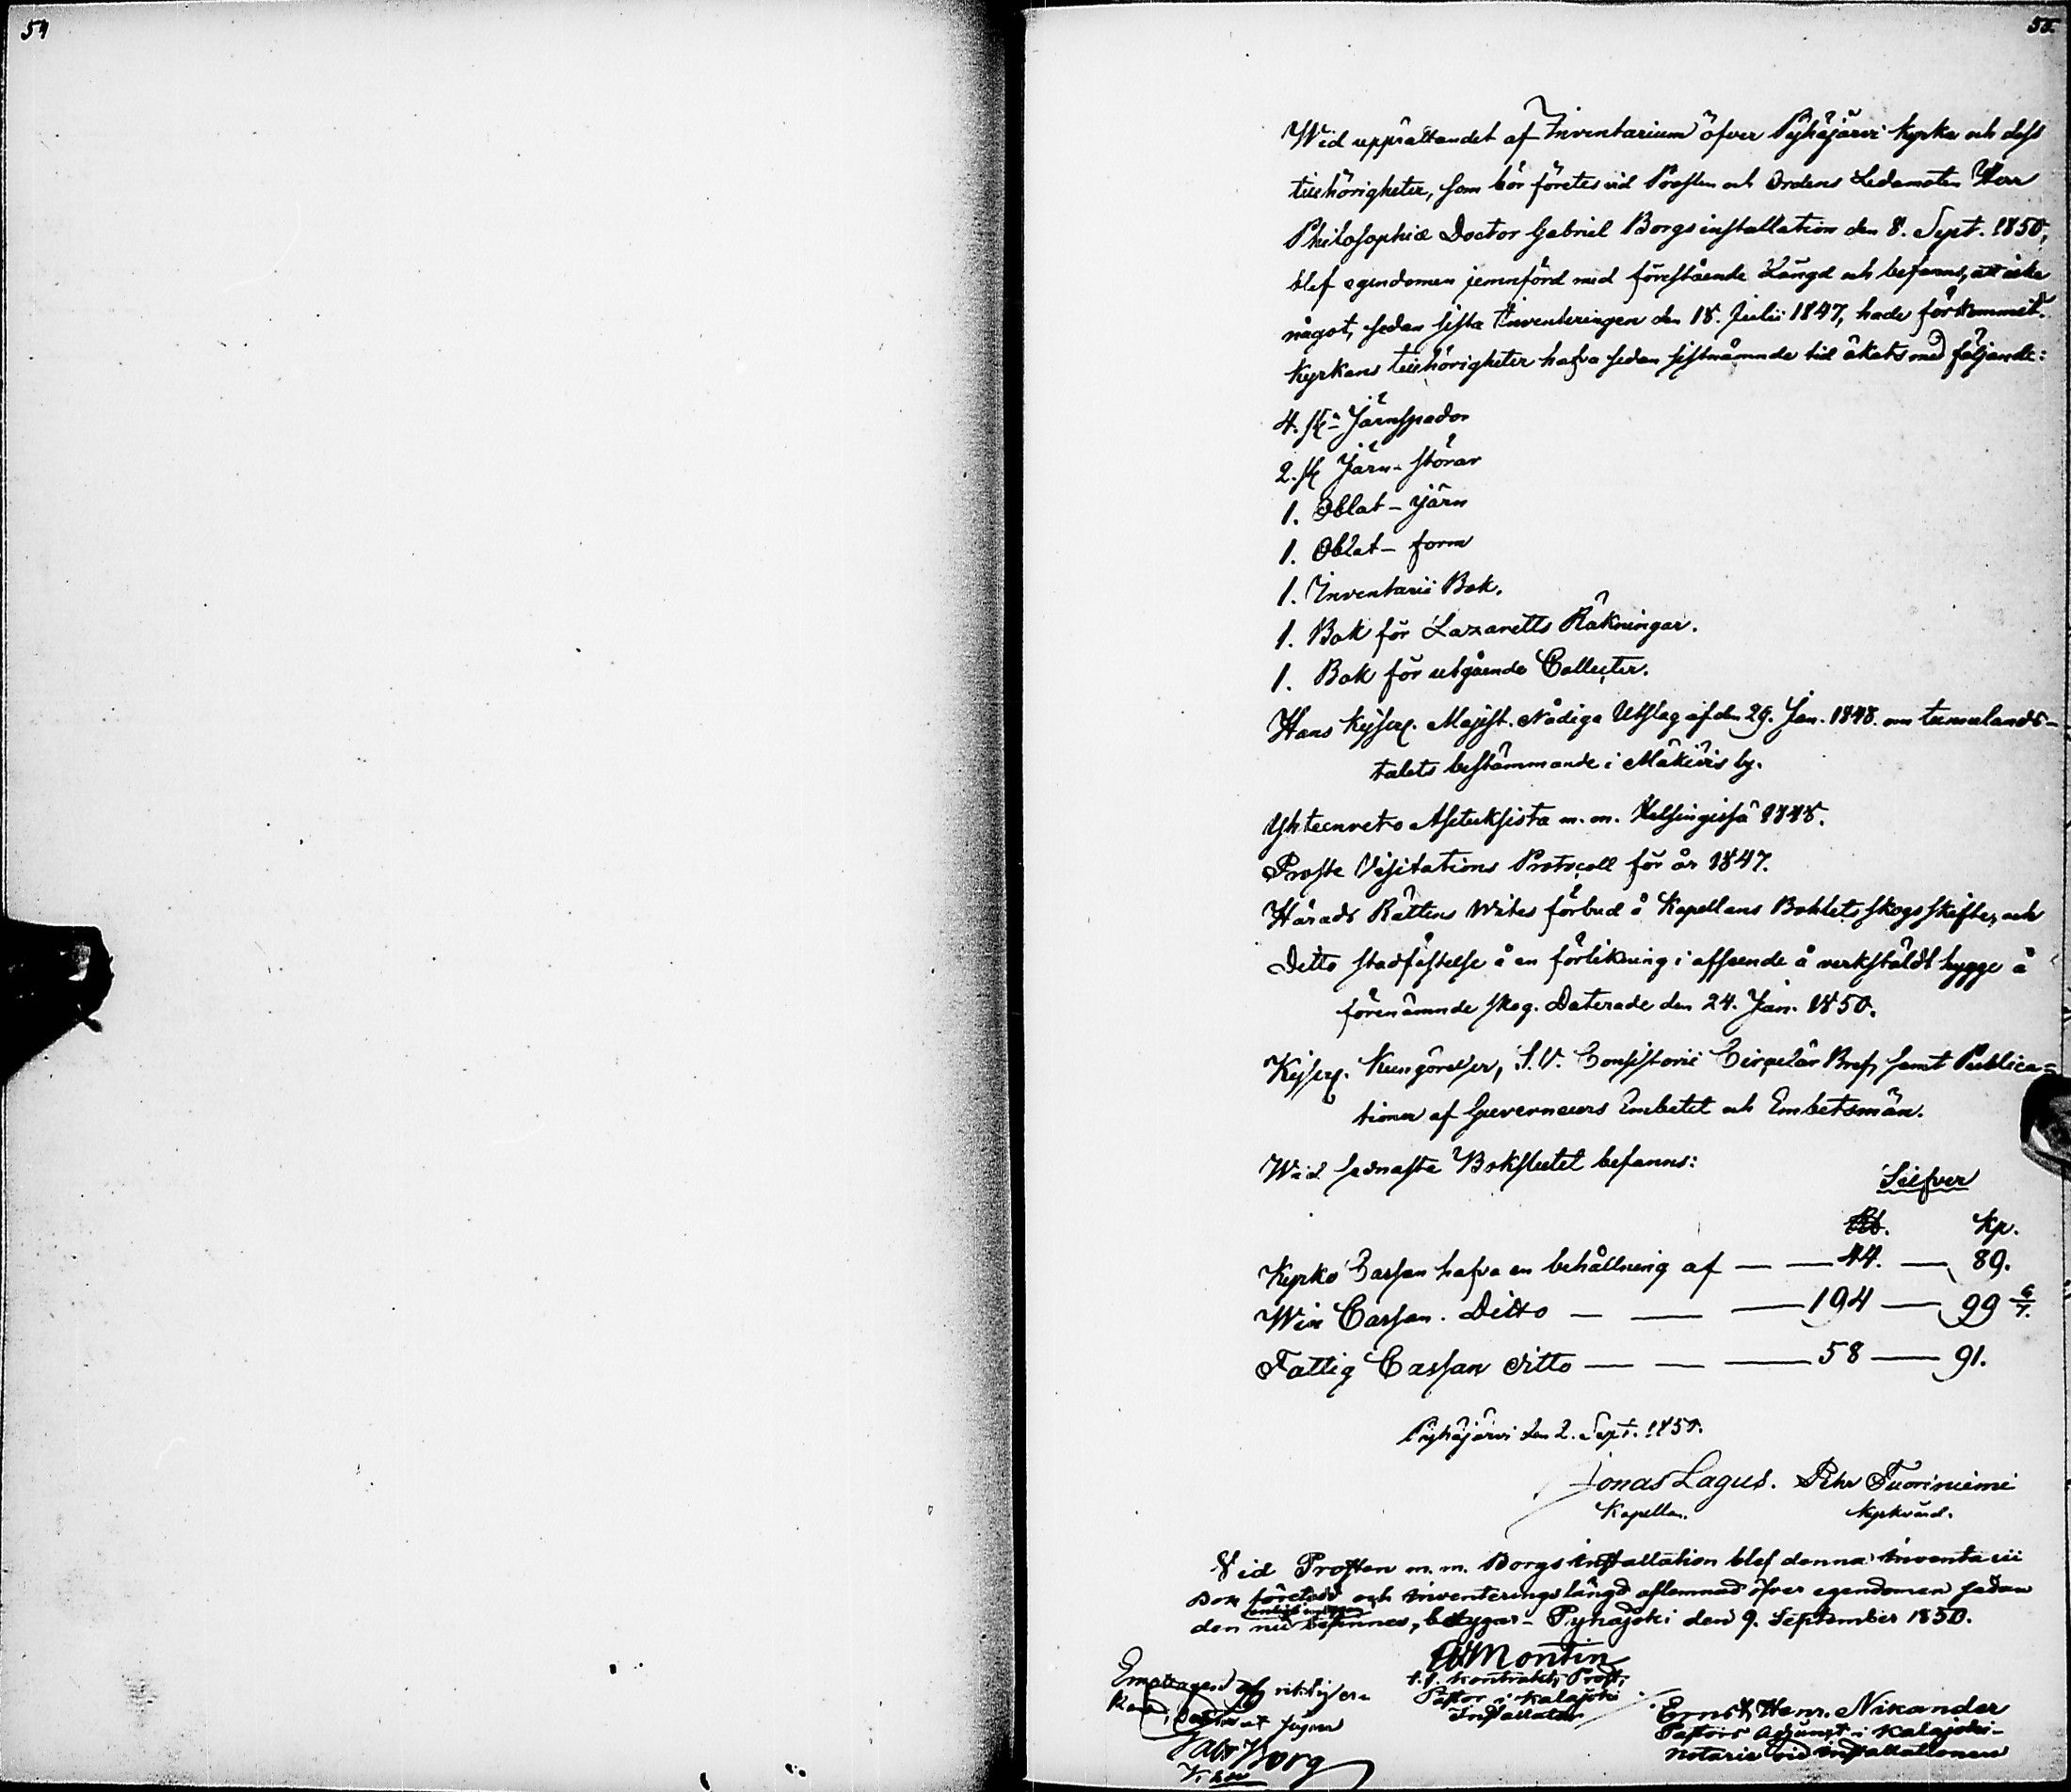 54
55.
Wid upprättandet af Inventarium öfver Pyhäjärvi Kyrka och dess
tillhörigheter, som bör företes vid Prosten och Ordens Ledamoten Herr
Philosophiæ Doctor Gabriel Borgs installation den 8. Sept. 1850,
blef egendomen jemnförd med förestående Längd och befanns, att icke
något, sedan sista Inventeringen den 18. Julii 1847, hade förkommit.
Kyrkans tillhörigheter hafva sedan sistnämnde tid ökats med följande:
4. st: Järnspador
2. st Järn-störar
1. Oblat-järn
1. Oblat-form
1. Inventarii Bok.
1. Bok för Lazaretts Räkningar.
1. Bok för utgående Collecter.
Hans Kejserl. Majest. Nådiga Utslag af den 29. Jan. 1848. om tunnlands-
talets bestämmande i Mäkiöis by.
Yhteenveto Asetuksista m.m. Helsingissä 1848.
Proste Visitations Protocoll för år 1847.
Härads Rättens Vites förbud å Kapellans Bohlets skogsskifte, och
Ditto stadfästelse å en förlikning i afseende å verkstäldt hygge å
förenämnde skog. Daterade den 24. Jan. 1850.
Kejserl. Kungörelser, S.V. Consistorii Circulär Bref, samt Publica=
tioner af Guverneurs Embetet och Embetsmän.
Wid sednaste Bokslutet befanns:
Silfver
Rb. Kp.
Kyrko Cassan hafva en behållning af — — 44. — 89.
Win Cassan. Ditto — — — 194 — 99 6/7.
Fattig Cassan ditto — — — 58 — 91.
Pyhäjärvi den 2. Sept. 1850.
Jonas Lagus. Pehr Tuoriniemi
Kapellan. Kyrkvärd.
Vid Prosten m.m. Borgs installation blef denna inventarii
Bok företedd och inventeringslängd aflemnad öfver egendomen sådan
den nu befinnes, betygar – Pyhäjoki den 9. September 1850.
Montin
t.f. Kontrakts Prost,
Pastor i Kalajoki
Installator
Ernst Henr. Nikander
Pastors Adjunct i Kalajoki–
Notarie vid installationen
Borg